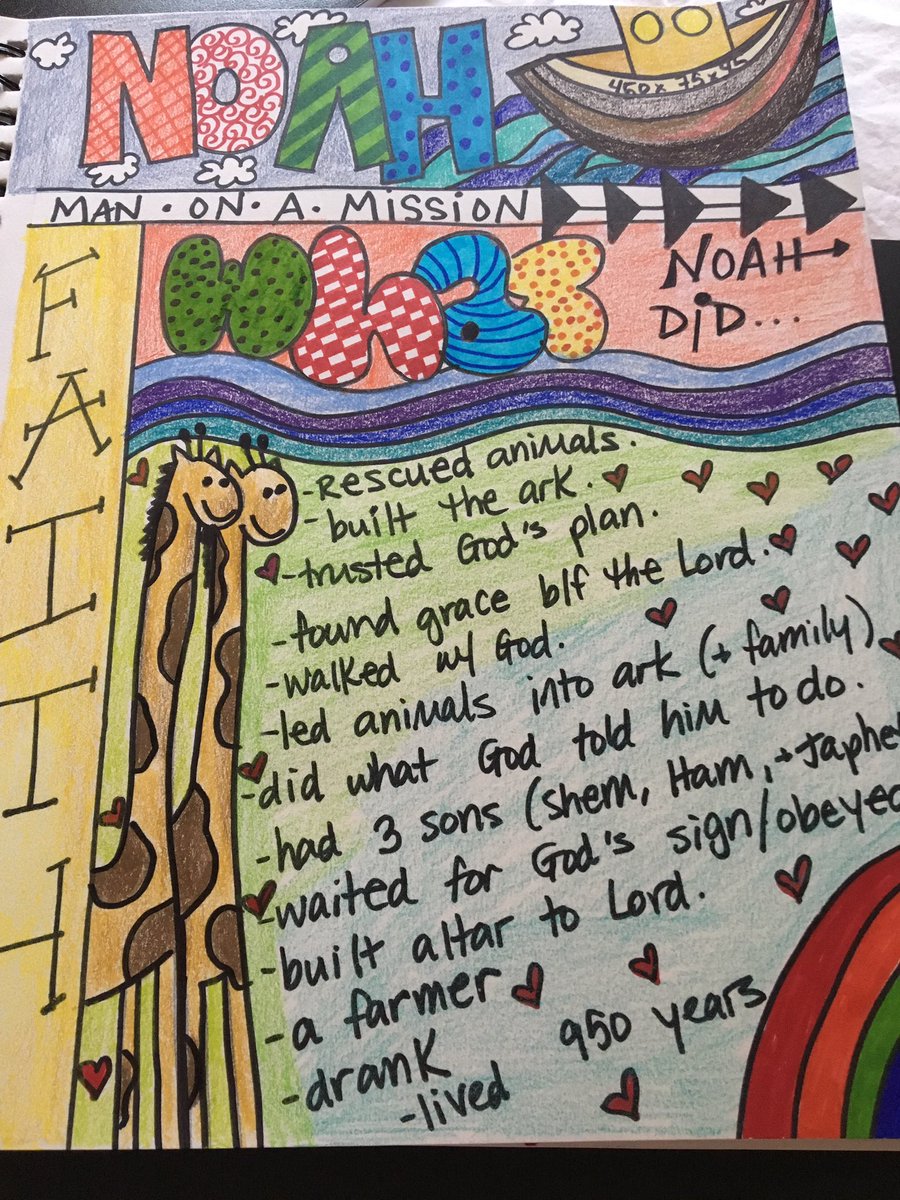 NOAH
450 x 75 x 45
MAN · ON · A · MISSION
FAITH
What
NOAH
DiD...
-Rescued animals.
-built the ark.
-trusted God's plan.
-found grace b/f the Lord.
-walked w/ God.
-led animals into ark (+ family)
-did what God told him to do.
-had 3 sons (Shem, Ham, + Japhe
-waited for God's sign/obeyed
-built altar to Lord.
-a farmer
-drank
-lived 950 years